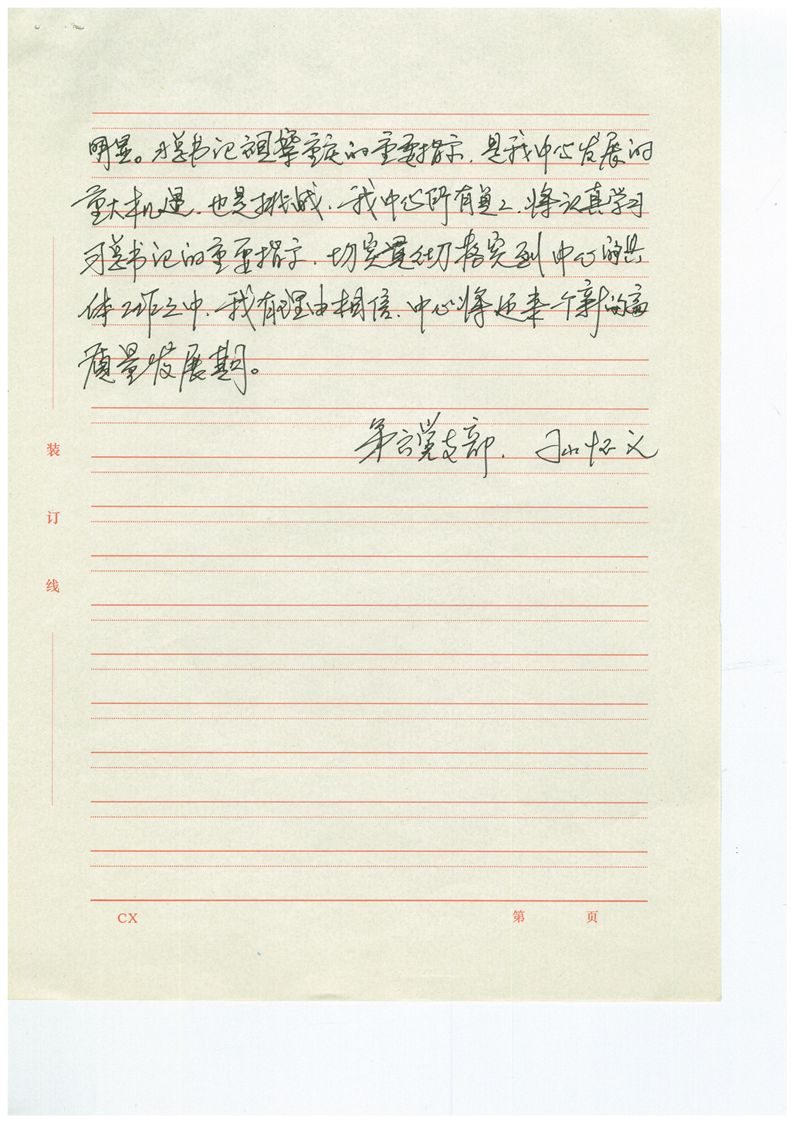 明显。习总书记视察重庆的重要指示，是我中心发展的
重大机遇，也是挑战，我中心所有员工，将认真学习
习总书记的重要指示，切实贯彻落实到中心的具
体工作之中，我有理由相信，中心将迎来一个新的高
质量发展期。
第六党支部，孙怀义
装
订
线
CX 第 页